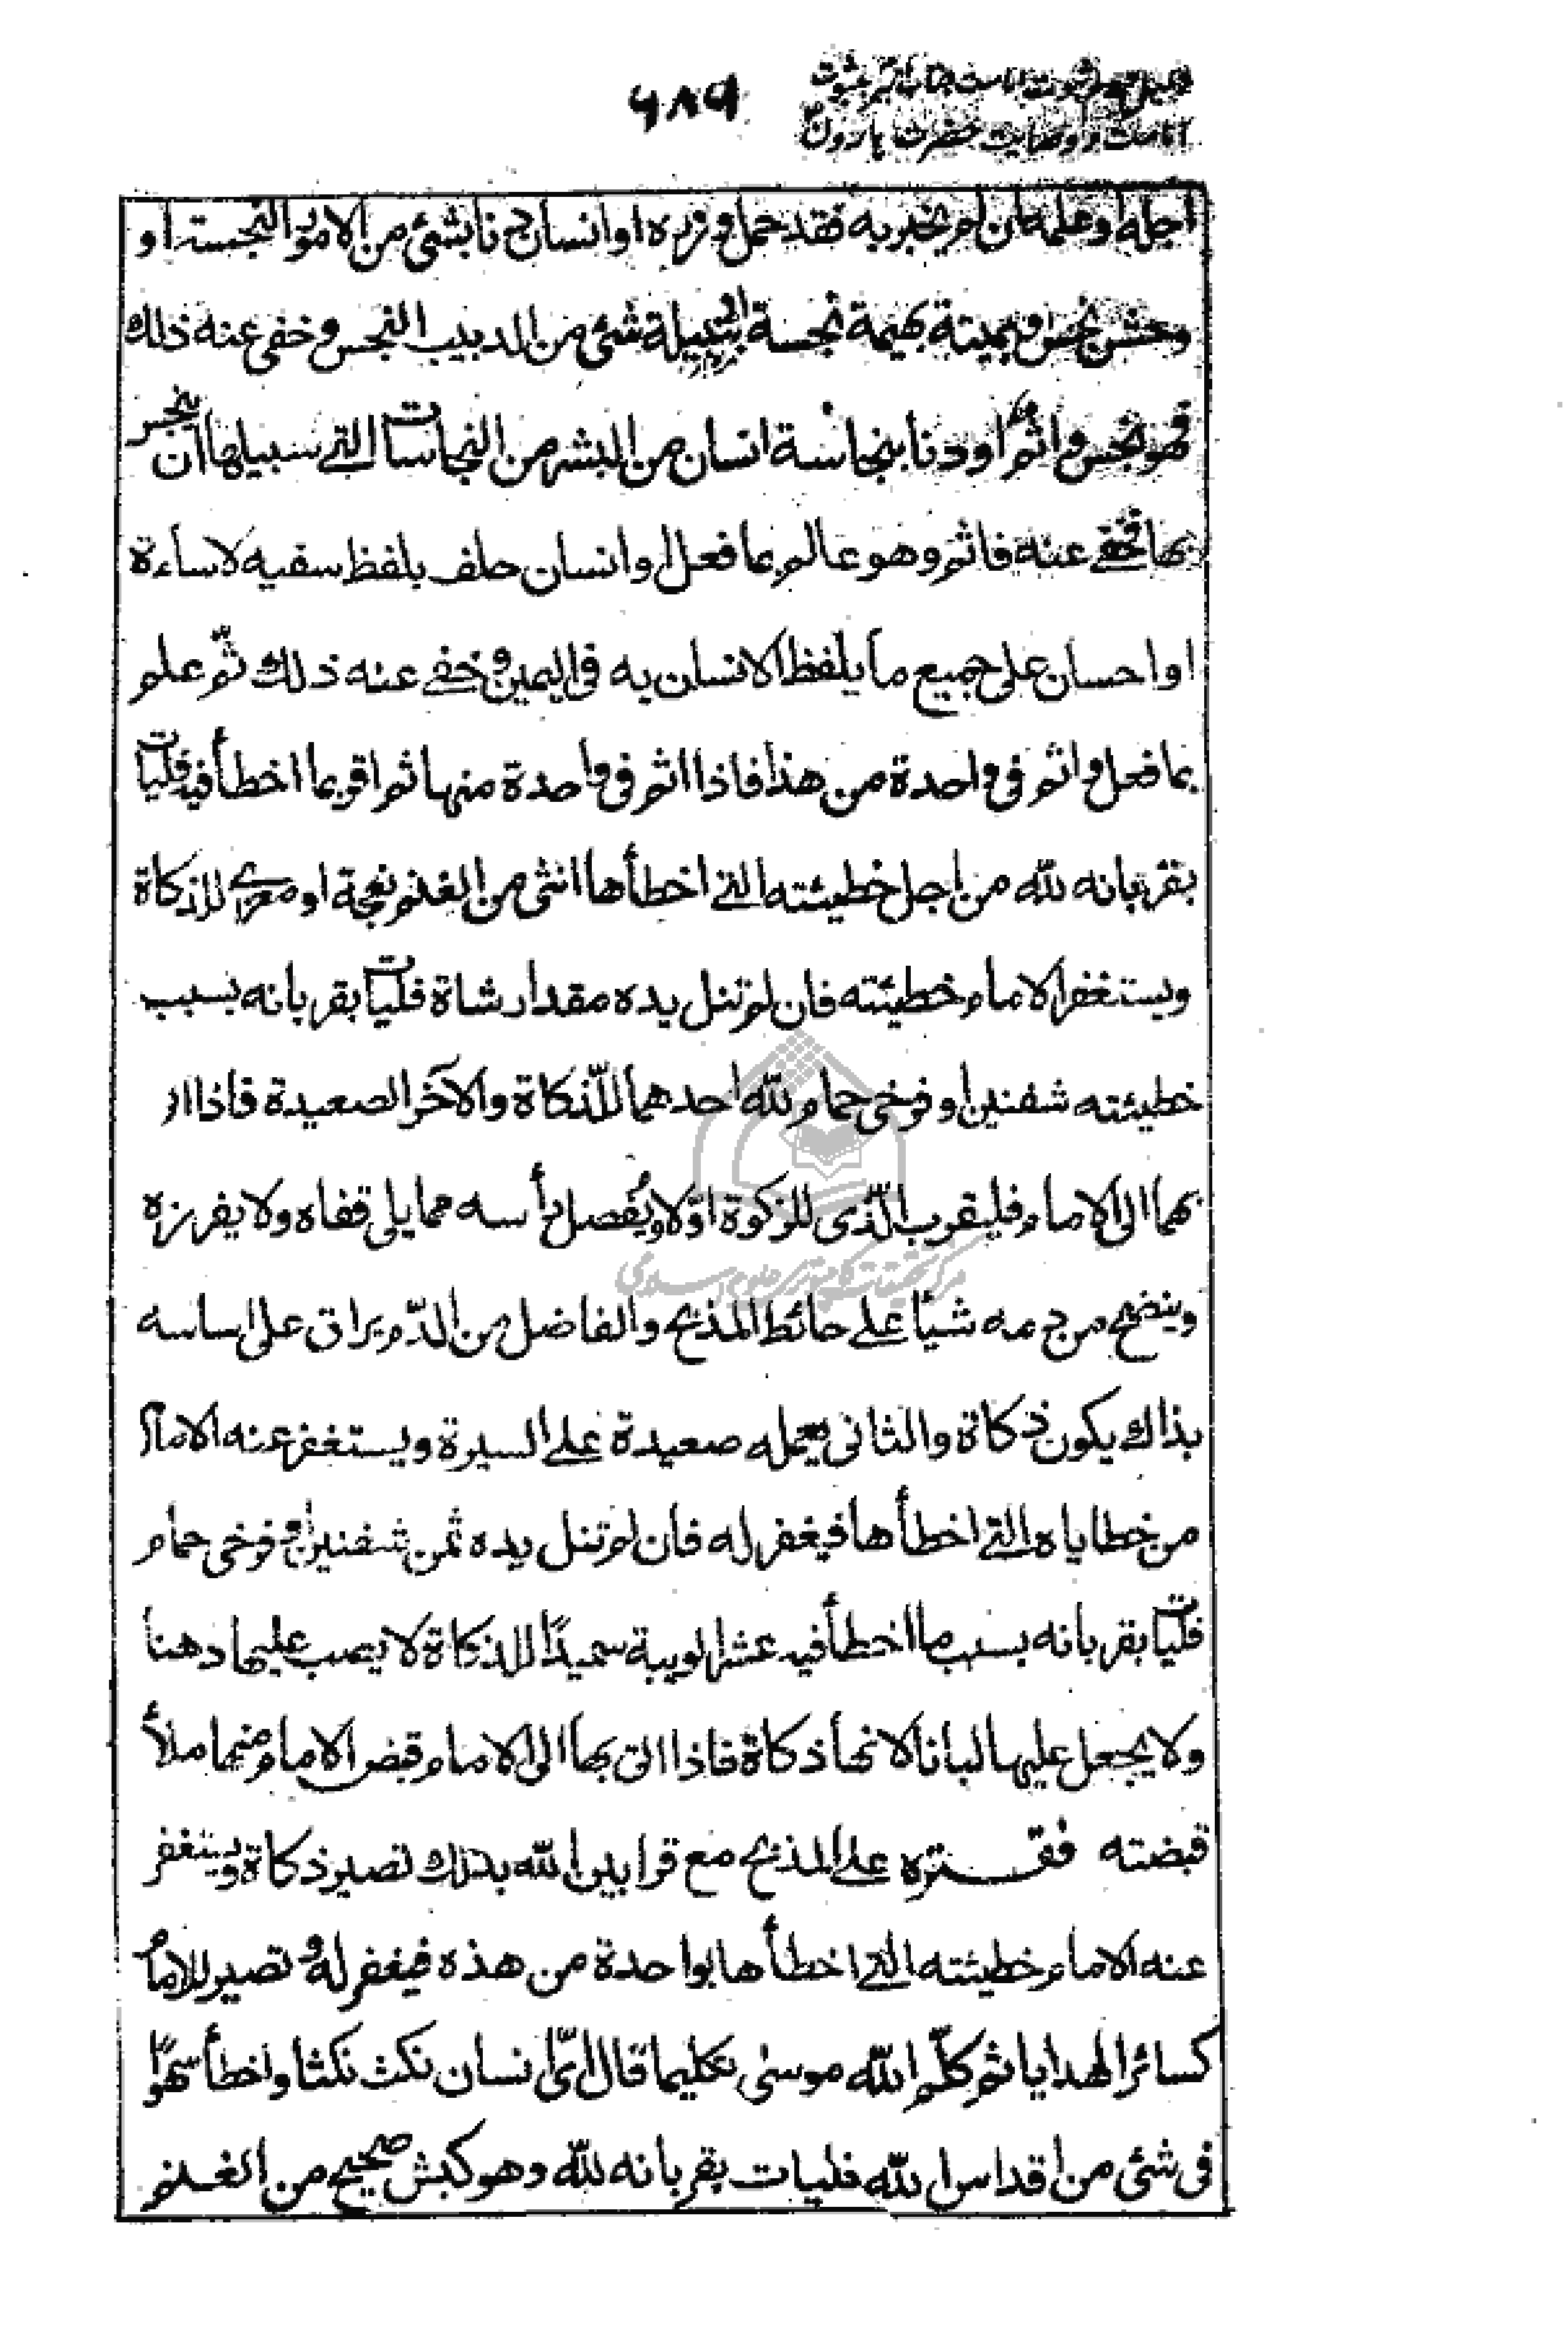 دلیل ثبوت امامت جناب امیر بثبوت
امامت و وصایت حضرت هارون
۶۸۹
اجله او علمه فان لم یخبر به فقد حمل وزره او انسان دنا بشئ من الامور النجسته او
وحش نجس او بمیتة بهیمة نجسة او بمیلة شئ من الدبیب النجس و خفی عنه ذلك
فهو نجس واثم او دنا بنجاسة انسان من البشر من النجاسات التی سبیلها ان ینجس
بها فخفی عنه فاثم وهو عالم بما فعل او انسان حلف بلفظ سفیه لاساءة
او احسان علی جمیع ما یلفظ الانسان به فی الیمین و خفی عنه ذلك ثمّ علم
بما فعل و اثم فی واحدة من هذا فاذا اثم فی واحدة منها ثم اقر بما اخطأ فیه فلیأت
بقربانه لله من اجل خطیئته التی اخطأها انثی من الغنم نعجة او معزی للذکاة
ویستغفر الامام خطیئته فان لم تنل یده مقدار شاة فلیأت بقربانه بسبب
خطیئته شفنین او فرخی حمام لله احدهما للذّکاة والآخر الصعیدة فاذا اتی
بهما الی الامام فلیقرب الّذی للزکوة اوّلا ویُفصل رأسه مما یلی قفاه ولا یفرزه
وینضح من دمه شیأ علی حائط المذبح والفاضل من الدّم یراق علی اساسه
بذاك یکون ذکاة والثانی یعمله صعیدة علی السیرة ویستغفر عنه الامام
من خطایاه التی اخطأها فیغفر له فان لم تنل یده ثمن شفنین او فرخی حمام
فلیأت بقربانه بسبب ما اخطأ فیه عشر الویبة سمیذًا للذکاة لا یصب علیها دهنا
ولا یجعل علیها لبانا لانها ذکاة فاذا اتی بها الی الامام قبض الامام منها ملأ
قبضته فقتره علی المذبح مع قرابین الله بذلك تصیر ذکاة ویستغفر
عنه الامام خطیئته التی اخطأها بواحدة من هذه فیغفر له و تصیر للامام
کسائر الهدایا ثم کلّم الله موسی تکلیما قال ایّ انسان نکث نکثا واخطأ سهوًا
فی شئ من اقداس الله فلیات بقربانه لله وهو کبش صحیح من الغنم
مرکز تحقیقات کامپیوتری علوم اسلامی